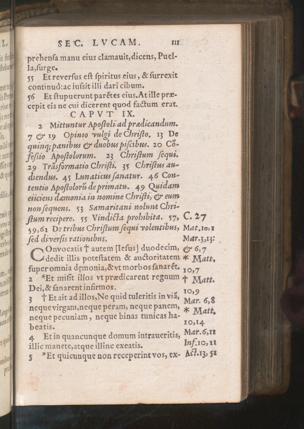 SEC. LVCAM. 111
prehensa manu eius clamauit, dicens, Puel-
la, surge.
55 Et reuersus est spiritus eius, & surrexit
continuò: ac iussit illi dari cibum.
56 Et stupuerunt parẽtes eius. At ille præ-
cepit eis ne cui dicerent quod factum erat.
CAPVT IX.
2 Mittuntur Apostoli ad prædicandum.
7 & 19 Opinio vulgi de Christo. 13 De
quinq; panibus & duobus piscibus. 20 Cõ-
fessio Apostolorum. 23 Christum sequi.
29 Trãsformatio Christi. 35 Christus au-
diendus. 45 Lunaticus sanatur. 46 Con-
tentio Apostolorũ de primatu. 49 Quidam
eiiciens dæmonia in nomine Christi, & eum
non sequens. 53 Samaritani nolunt Chri-
stum recipere. 55 Vindicta prohibita. 57,
59, 62 De tribus Christum sequi volentibus,
sed diuersis rationibus.
COnuocatis † autem [Iesus] duodecim,
dedit illis potestatem & auctoritatem
super omnia dæmonia, & vt morbos sanarẽt.
2 *Et misit illos vt prædicarent regnum
Dei, & sanarent infirmos.
3 † Et ait ad illos, Ne quid tuleritis in viã,
neque virgam, neque peram, neque panem,
neque pecuniam, neque binas tunicas ha-
beatis.
4 Et in quancunque domum intraueritis,
illic manete, atque illinc exeatis.
5 *Et quicunque non receperint vos, ex-
C. 27
Mat. 10.1
Mar. 3,13:
& 6,7
* Matt.
10,7
† Matt.
10,9
Mar. 6,8
* Matt.
10,14
Mar. 6,11
Inf. 10,11
Act. 13,51